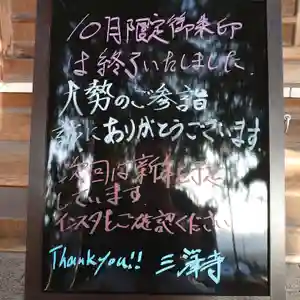 10月限定御朱印
は終了いたしました.
大勢のご参詣
誠にありがとうございます.
次回は
しています.
インスタをご確認ください
Thank you!! 三澤寺